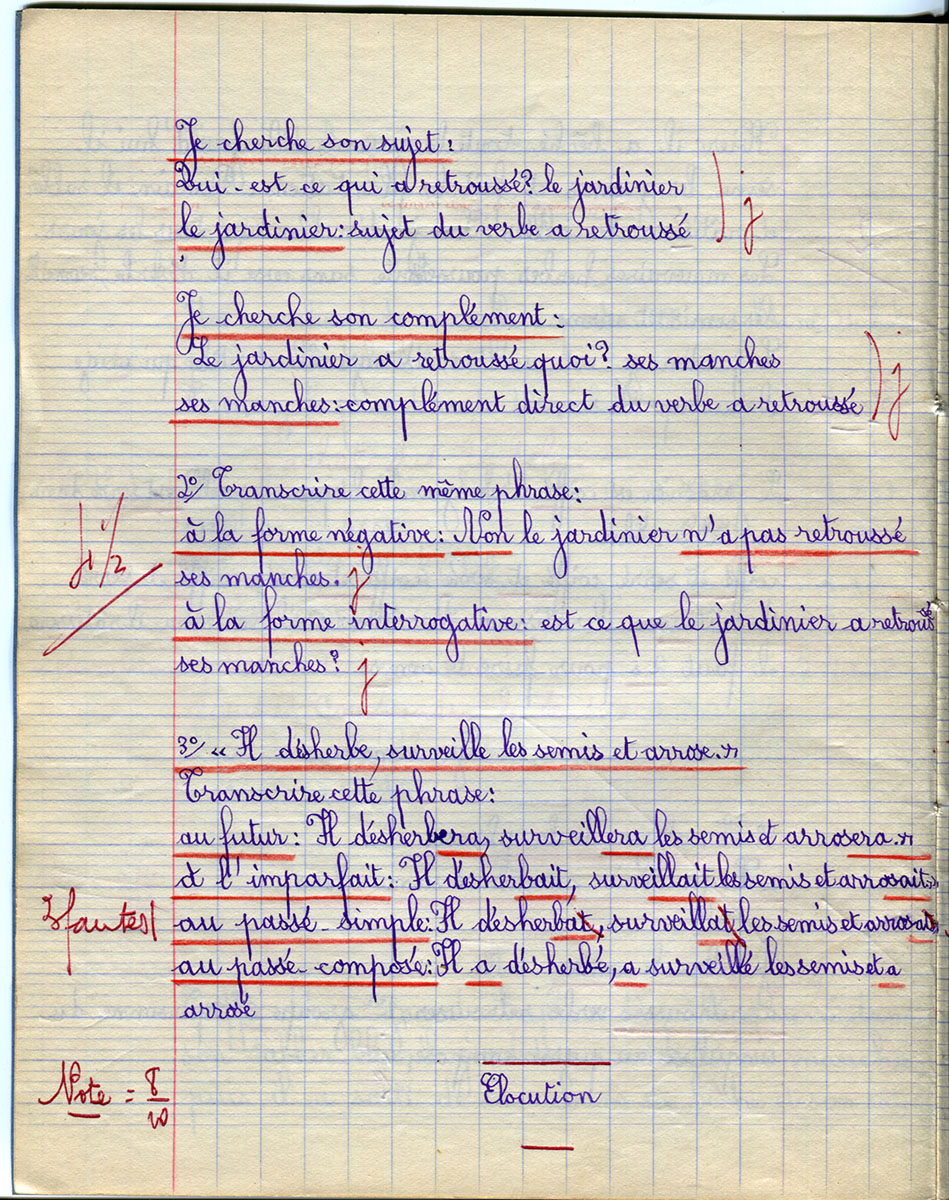 Je cherche son sujet :
Qui - est ce qui a retroussé? le jardinier
le jardinier : sujet du verbe a retroussé
j
Je cherche son complément :
Le jardinier a retroussé quoi? ses manches
ses manches : complément direct du verbe a retroussé
j
2°/ Transcrire cette même phrase :
à la forme négative : Non le jardinier n'a pas retroussé
ses manches. j
à la forme interrogative : est ce que le jardinier a retroussé
ses manches? j
1/2
3°/ « Il désherbe, surveille les semis et arrose. »
Transcrire cette phrase :
au futur : Il désherbera, surveillera les semis et arrosera. »
à l'imparfait : Il désherbait, surveillait les semis et arrosait. »
fautes
au passé - simple : Il désherbat, surveillat, les semis et arrosat
au passé - composé : Il a désherbé, a surveillé les semis et a
arrosé
Note = 8/10
Elocution